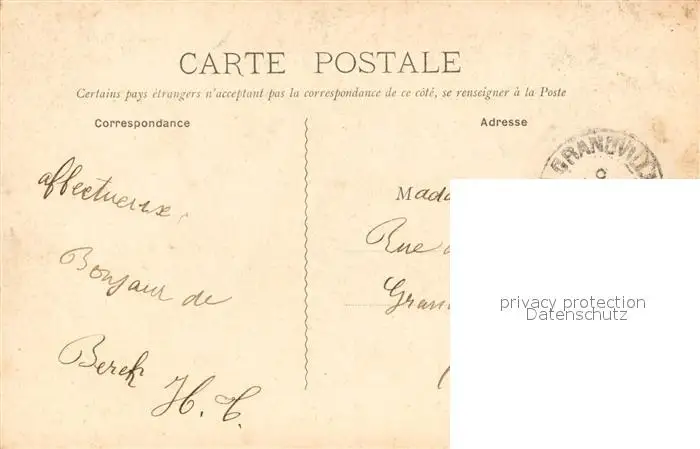 CARTE POSTALE
Certains pays étrangers n'acceptant pas la correspondance de ce côté, se renseigner à la Poste
Correspondance
Adresse
GRANDVILL
affectueux
Bonjour de
Berck
H. C.
Mada
Rue
Gran
privacy protection
Datenschutz